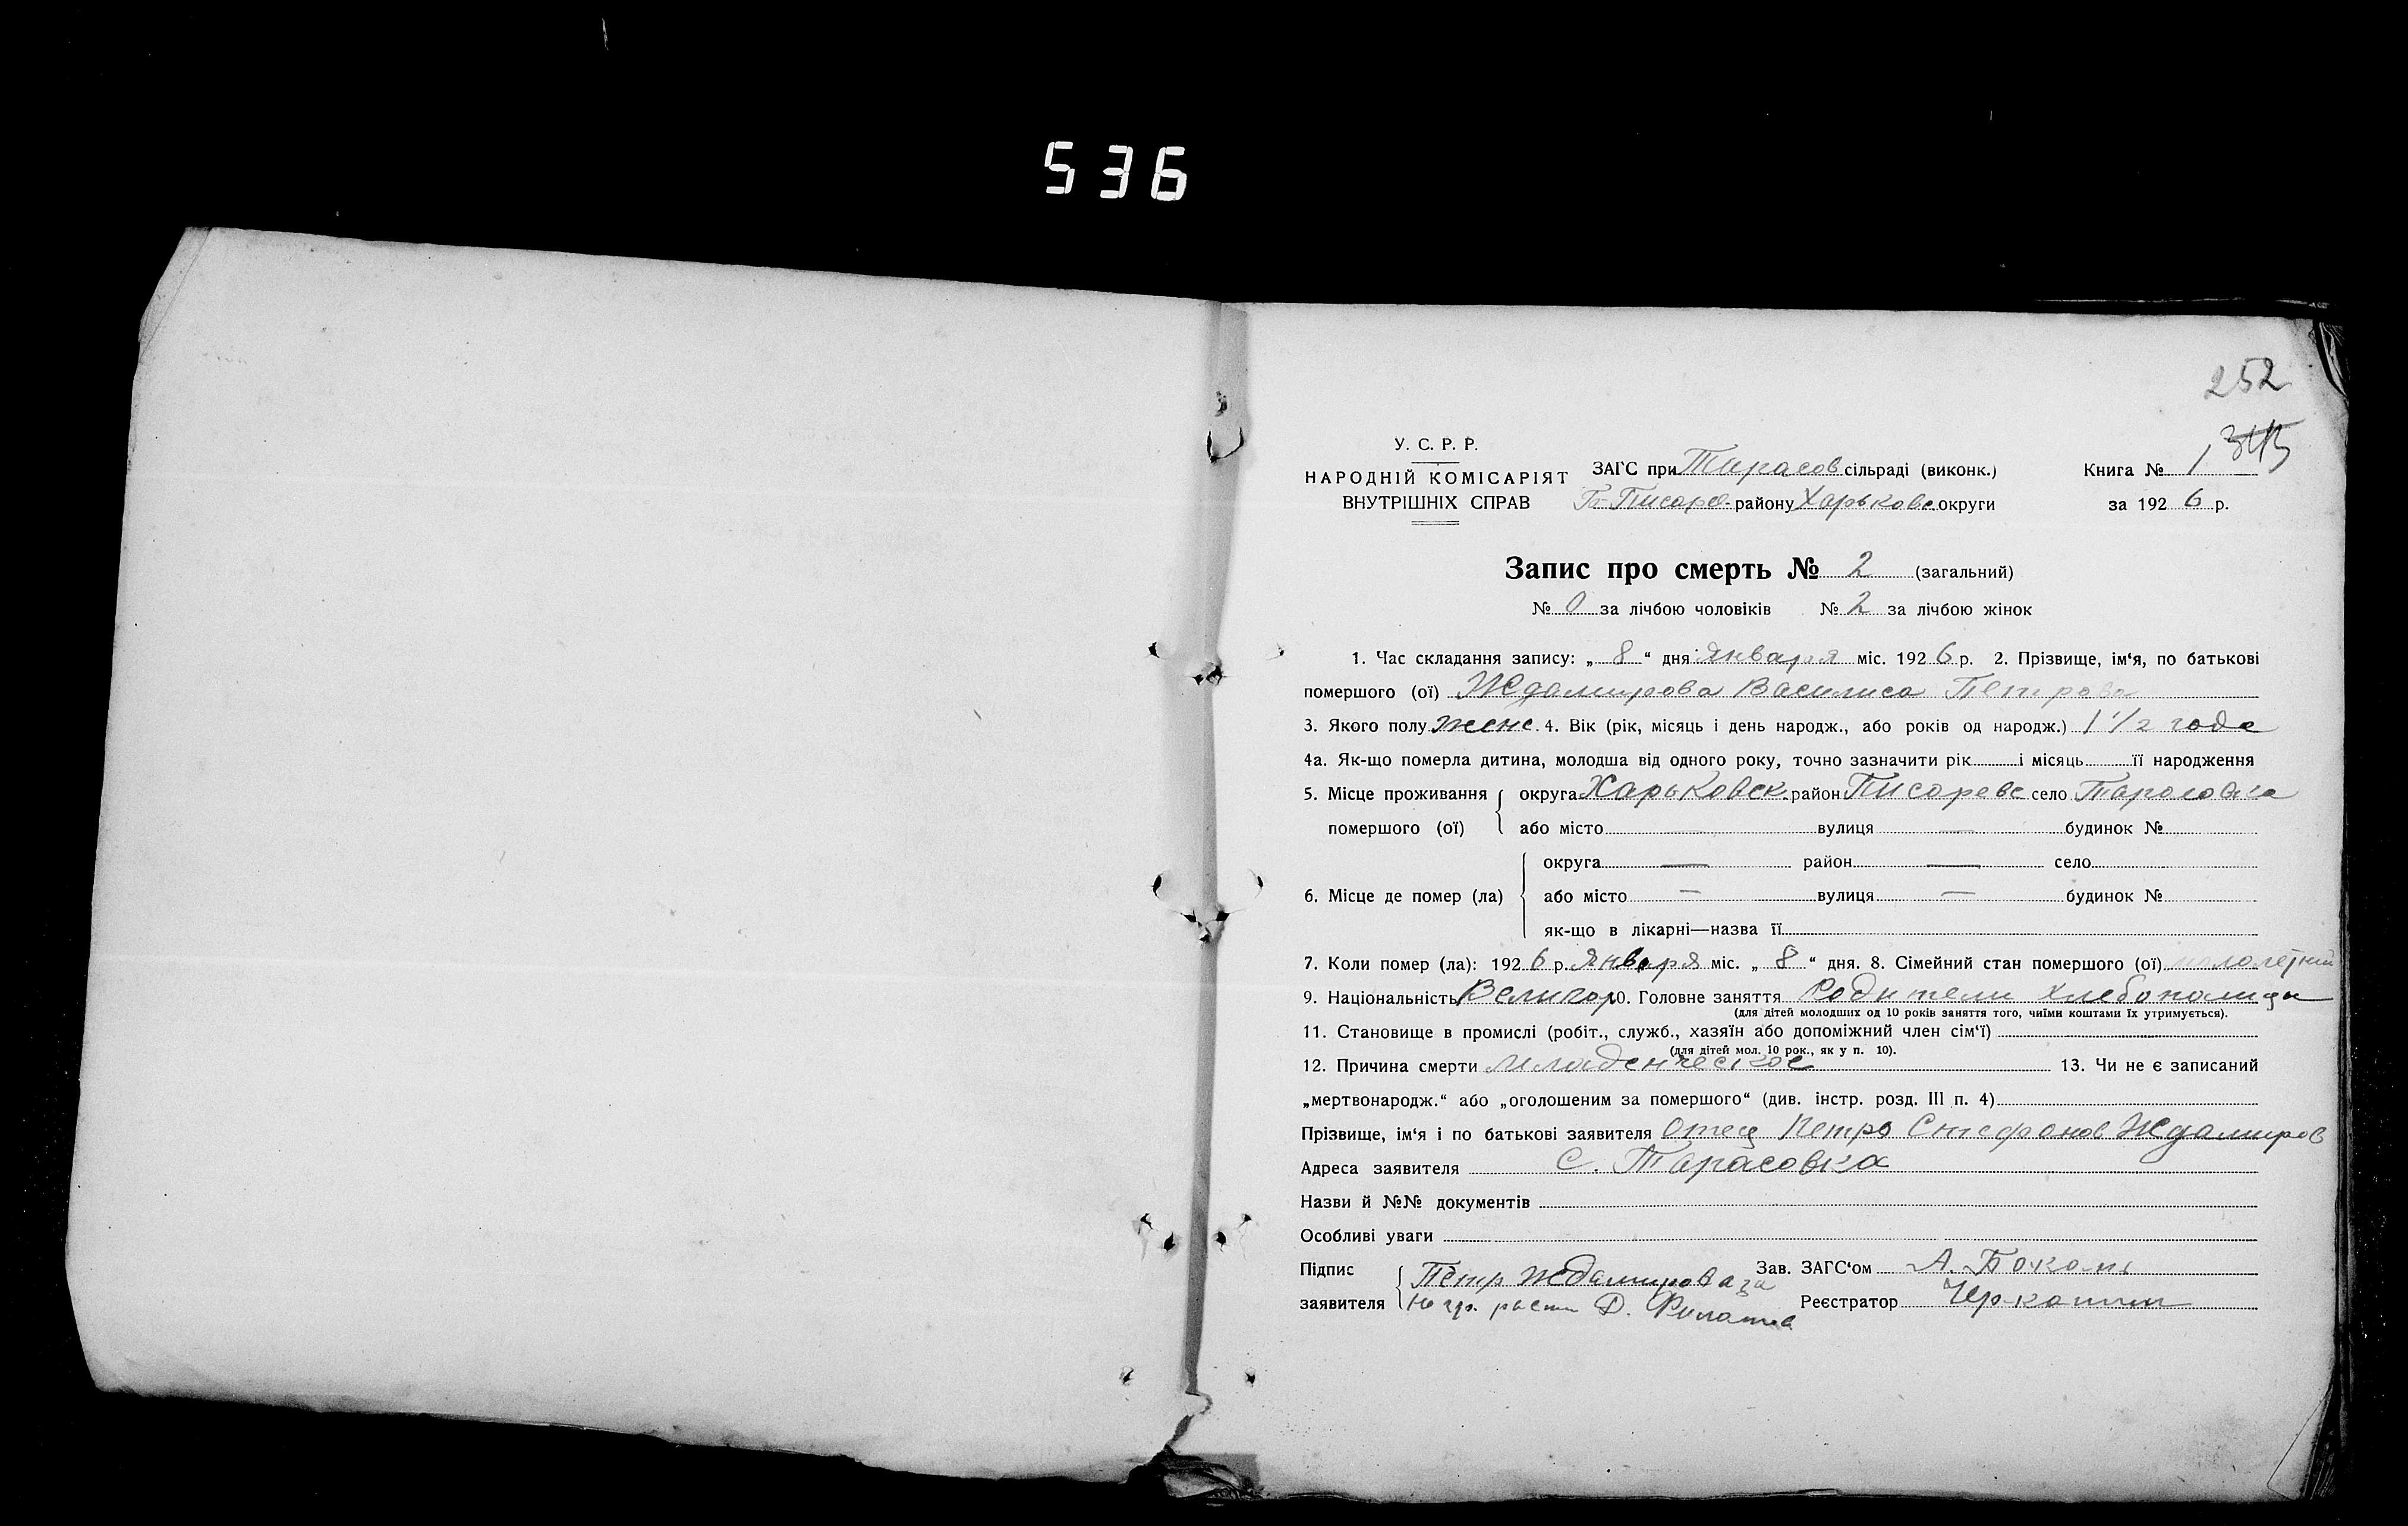 536
252
У. С. Р. Р.
НАРОДНІЙ КОМІСАРІЯТ
ВНУТРІШНІХ СПРАВ
ЗАГС при Тарасов сільраді (виконк.)
Б-Писарв. району Харьковс округи
Книга № 1 345
за 1926 р.
Запис про смерть № 2 (загальний)
№ 0 за лічбою чоловіків № 2 за лічбою жінок
1. Час складання запису: „ 8 “ дня Января міс. 1926 р. 2. Прізвище, ім‘я, по батькові
помершого (ої) Ждамирова Василиса Петрова
3. Якого полу женс. 4. Вік (рік, місяць і день народж., або років од народж.) 1 1/2 года
4а. Як-що померла дитина, молодша від одного року, точно зазначити рік і місяць її народження
5. Місце проживання округа Харьковск. район Писаревс село Тарасовка
помершого (ої) або місто — вулиця — будинок №
округа — район — село
6. Місце де помер (ла) або місто — вулиця — будинок №
як-що в лікарні—назва її
7. Коли помер (ла): 1926 р. Января міс. „ 8 “ дня. 8. Сімейний стан помершого (ої) малолетний
9. Національність Великор 10. Головне заняття Родители
(для дітей молодших од 10 років заняття того, чиїми коштами їх утримується).
11. Становище в промислі (робіт., служб., хазяїн або допоміжний член сім‘ї)
(для дітей мол. 10 рок., як у п. 10).
12. Причина смерти младенческое 13. Чи не є записаний
„мертвонародж.“ або „оголошеним за помершого“ (див. інстр. розд. III п. 4)
Прізвище, ім‘я і по батькові заявителя Отец Петро Стефанов Ждамиров
Адреса заявителя с. Тарасовка
Назви й №№ документів
Особливі уваги
Підпис Петр Ждамирова за Зав. ЗАГС‘ом А.
заявителя Д. Реєстратор